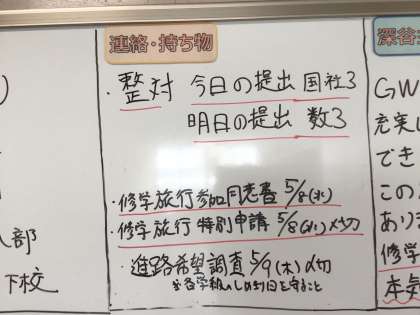 連絡・持ち物
・整対 今日の提出 国社3
明日の提出 数3
・修学旅行参加同意書 5/8(水)
・修学旅行 特別申請 5/8(水)〆切
・進路希望調査 5/9(木)〆切
※各学級のしめ切り日を守ること
部
下校
深谷
GW
充実し
でき
このよ
あり
修学
本気